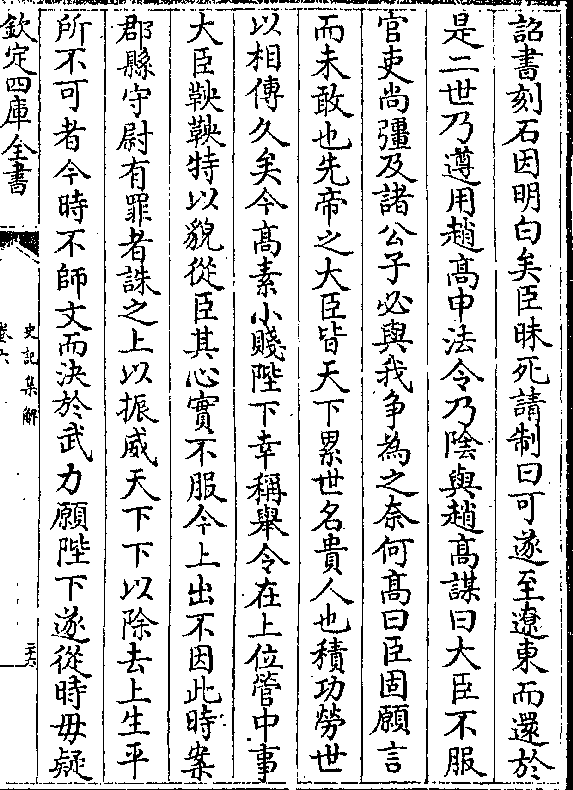 詔書刻石因明白矣臣昧死請制曰可遂至遼東而還於
是二世乃遵用趙髙申法令乃隂與趙髙謀曰大臣不服
官吏尚彊及諸公子必與我爭為之奈何髙曰臣固願言
而未敢也先帝之大臣皆天下累世名貴人也積功勞世
以相傳久矣今髙素小賤陛下幸稱舉令在上位管中事
大臣鞅鞅特以貌從臣其心實不服今上出不因此時案
郡縣守尉有罪者誅之上以振威天下下以除去上生平
所不可者今時不師文而決於武力願陛下遂從時毋疑
欽定四庫全書
史記集解
卷六